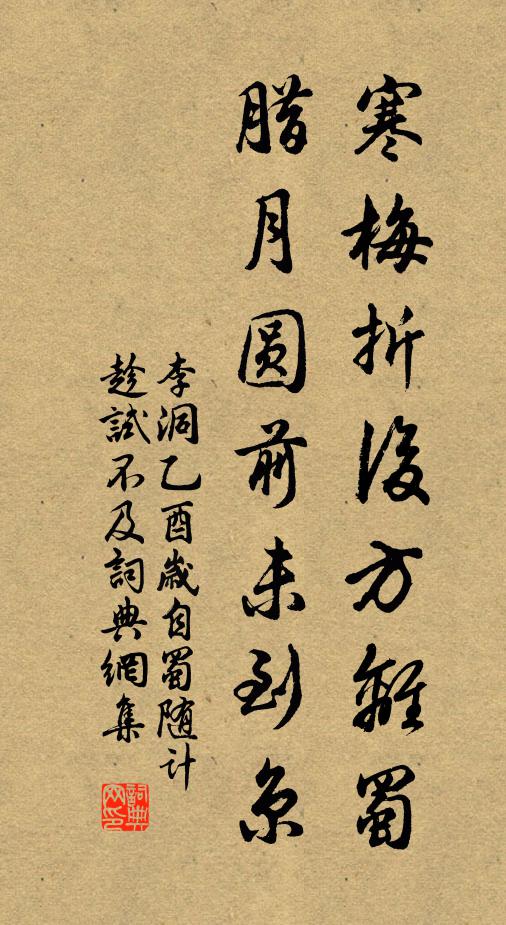 寒梅折後方離蜀
腊月圓前未到京
李洞乙酉歲自蜀随计
趁試不及詞典網集
詞典网印